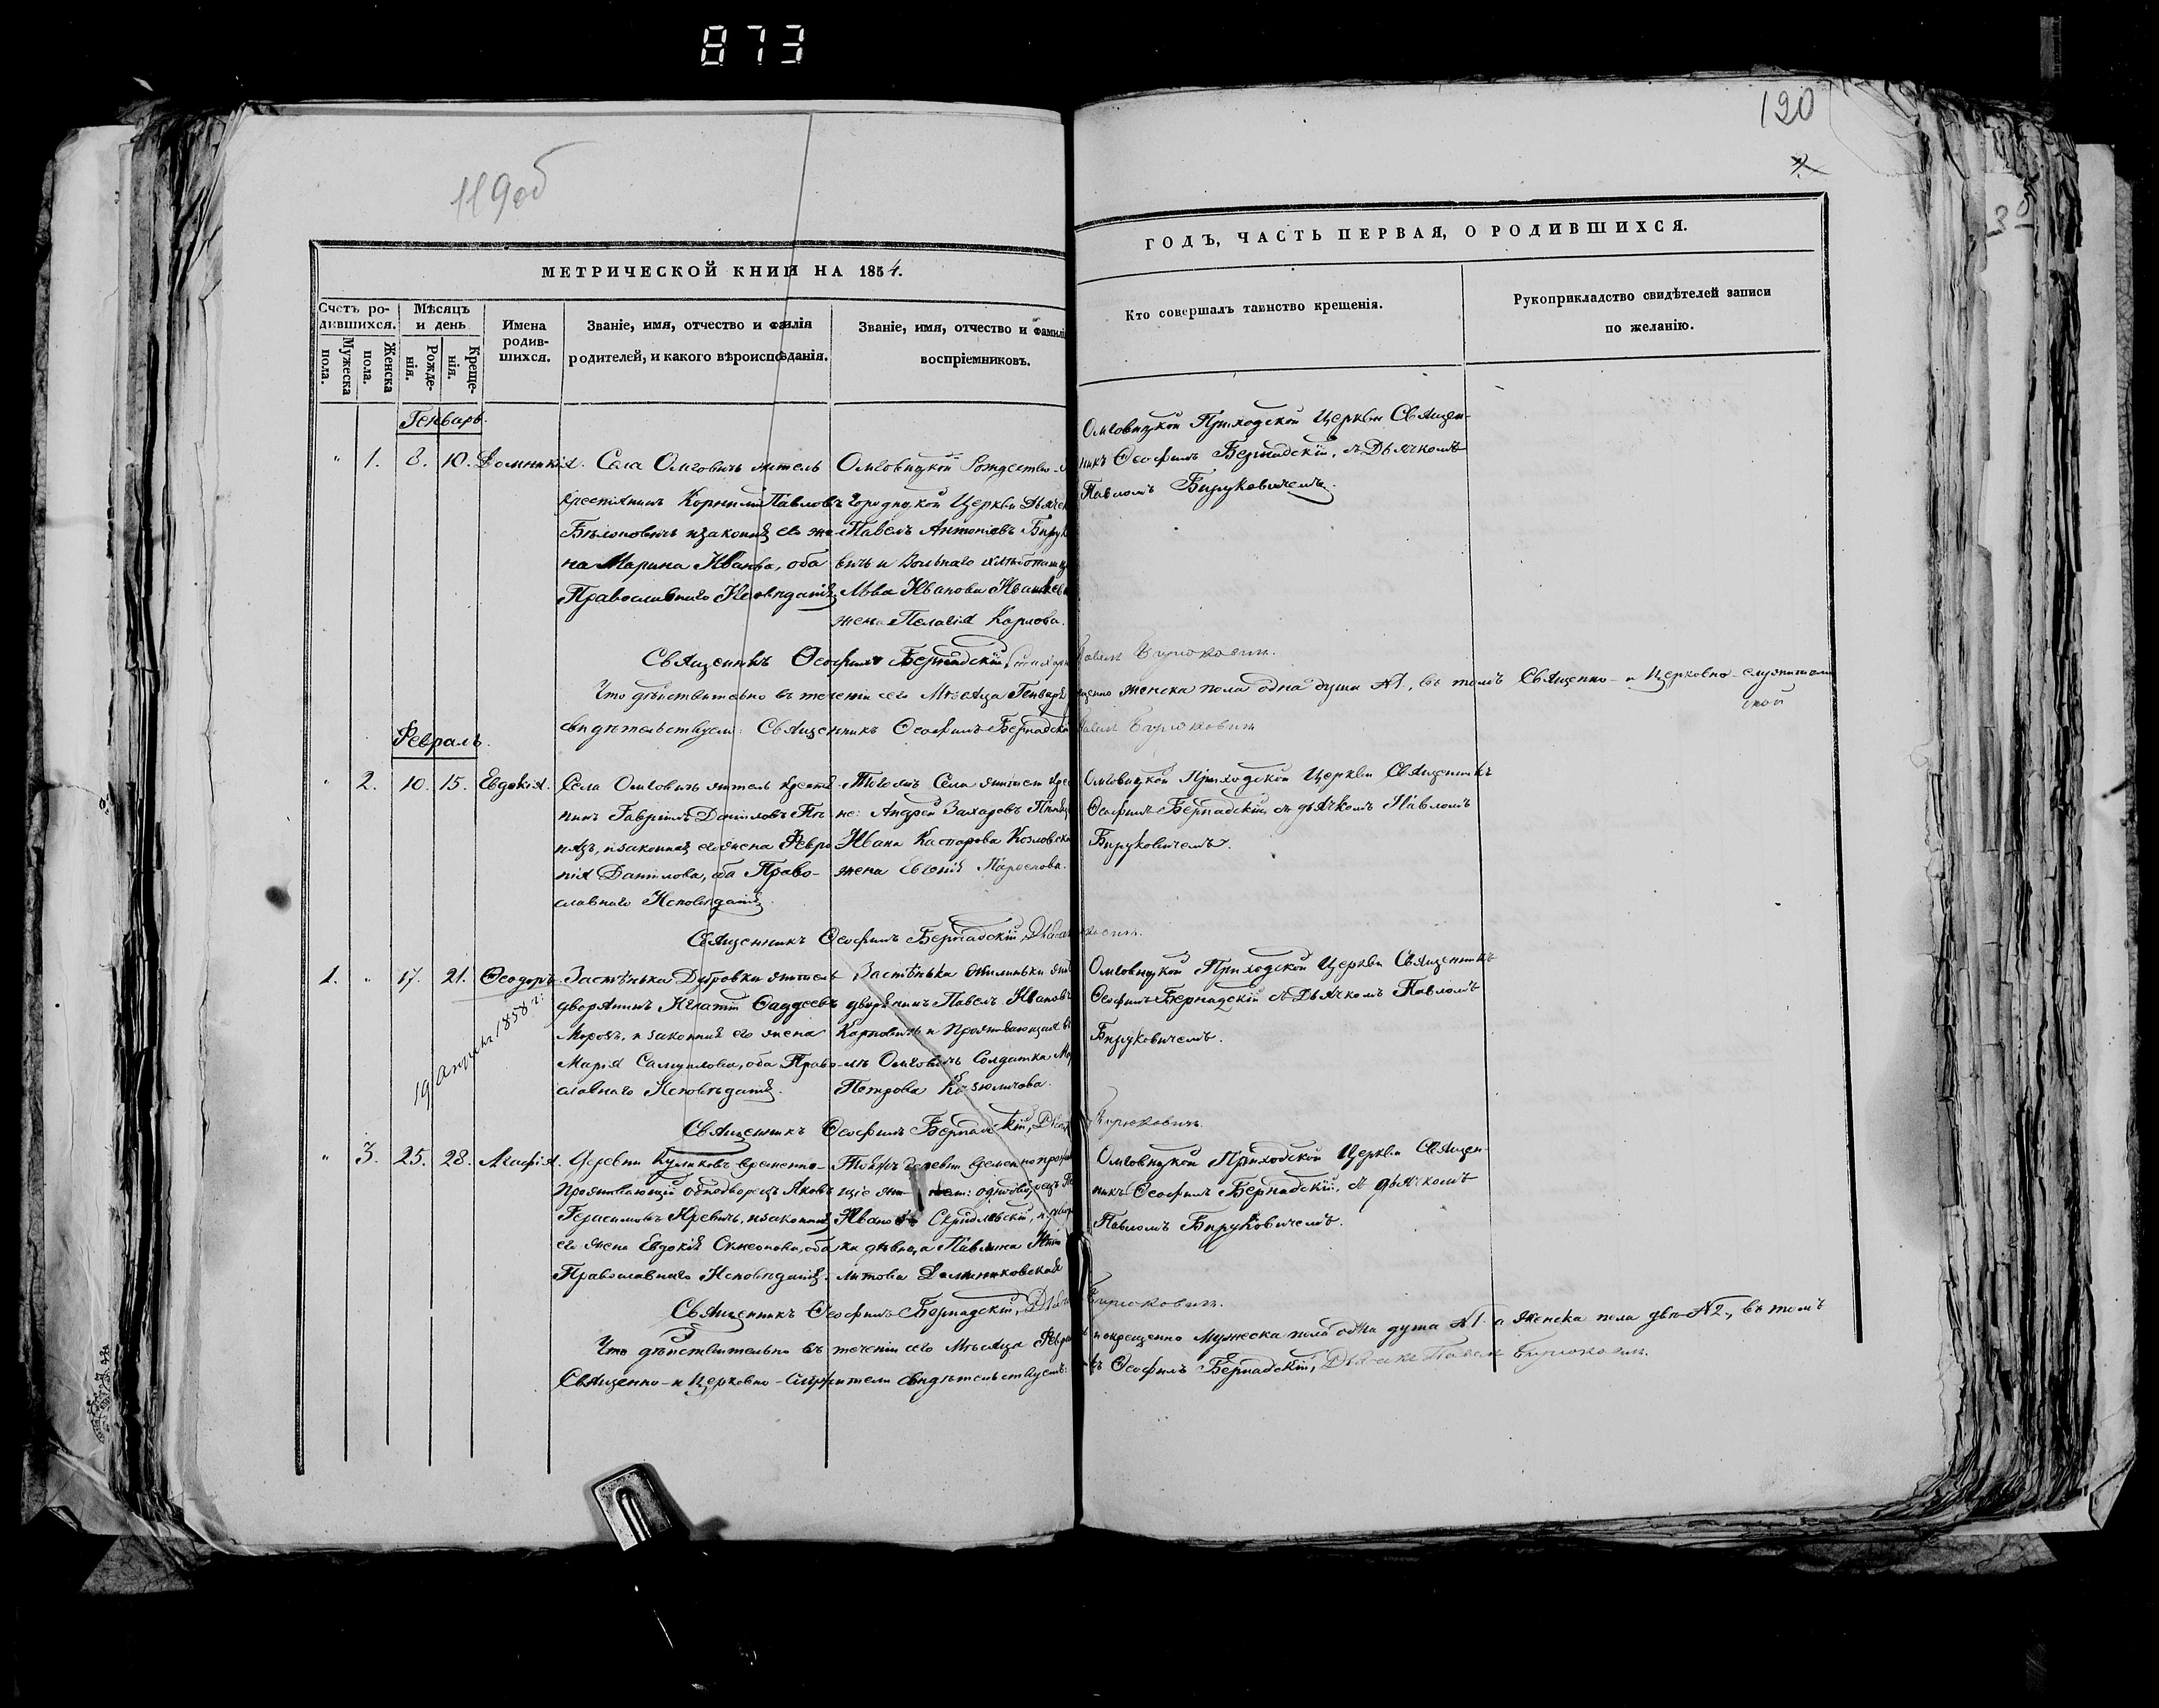 873
119об
120
МЕТРИЧЕСКОЙ КНИГИ НА 1854.
ГОДЪ, ЧАСТЬ ПЕРВАЯ, О РОДИВШИХСЯ.
Счетъ ро-
дившихся.
Мужеска
пола.
Женска
пола.
Мѣсяцъ
и день
Рожде-
нія.
Креще-
нія.
Имена
родив-
шихся.
Званіе, имя, отчество и фамилія
родителей, и какого вѣроисповѣданія.
Званіе, имя, отчество и фамилія
воспріемниковъ.
Кто совершалъ таинство крещенія.
Рукоприкладство свидѣтелей записи
по желанію.
Генварь.
" 1. 8. 10. Домникія.
Села Омговичъ житель
крестьянинъ Корнилій Павловъ
и законная его же-
на Марина Иванова, оба
Православнаго Исповѣданія
Омговицкой Рождество-
Городицкой Церкви Дьячек
Павелъ Антоніевъ Бирук
вичъ и Вольнаго хлѣбопашца
Льва Иванова
жена Пелагія Карлова.
Омговицкой Приходской Церкви Священ-
никъ Ѳеофилъ Бернадскій, съ Дьячкомъ
Павломъ Бируковичемъ.
Священникъ Ѳеофилъ Бернадскій,
Павелъ Бирюковичъ.
Что дѣйствительно въ теченіи сего Мѣсяца Генваря
женска пола одна душа №1, въ томъ Священно- и Церковно-служители
свидѣтельствуемъ: Священникъ Ѳеофилъ Бернадскій
Павелъ Бирюковичъ
Февраль.
" 2. 10. 15. Евдокія.
Села Омговичъ житель крестья
нинъ Гавріилъ Даніиловъ
и законная его жена Февро
нія Данилова, оба Право-
славнаго Исповѣданія
Того жъ Села жители кре
не: Андрей Захаровъ
Ивана Каспарова Козловска
жена Евгенія
Омговицкой Приходской Церкви Священникъ
Ѳеофилъ Бернадскій, съ дьячкомъ Павломъ
Бируковичемъ.
Священникъ Ѳеофилъ Бернадскій,
1. " 17. 21. Ѳеодоръ.
19 Апрѣля 1858 г:
Застѣнька Дубровки житель
дворянинъ Игнатій Ѳаддеевъ
Морозъ, и законная его жена
Марія Самуилова, оба Право
славнаго Исповѣданія.
Застѣнька
дворянинъ Павелъ Ивановъ
Карповичъ и проживающая въ
лѣ Омговичъ Солдатка
Петрова
Омговицкой Приходской Церкви Священникъ
Ѳеофилъ Бернадскій съ Дьячкомъ Павломъ
Бируковичемъ.
Священникъ Ѳеофилъ Бернадскій,
Бирюковичъ.
" 3. 25. 28. Агафія.
Деревни Куликовъ временно-
проживающій однодворецъ Яковъ
Герасимовъ Юревичъ, и законная
его жена Евдокія Симеонова, оба
Православнаго Исповѣданія.
Той жъ деревни временно прожи
щіе однодворецъ
Ивановъ
ка дѣвица Павлина
литова Доминиковская
Омговицкой Приходской Церкви Священ-
никъ Ѳеофилъ Бернадскій, съ дьячкомъ
Павломъ Бируковичемъ.
Священникъ Ѳеофилъ Бернадскій,
Бирюковичъ.
Что дѣйствительно въ теченіи сего Мѣсяца Февра
и окрещенно Мужеска пола одна душа №1 а Женска пола двѣ №2, въ томъ
Священно- и Церковно-служители свидѣтельствуемъ:
Ѳеофилъ Бернадскій, Дьячекъ Павелъ Бирюковичъ.